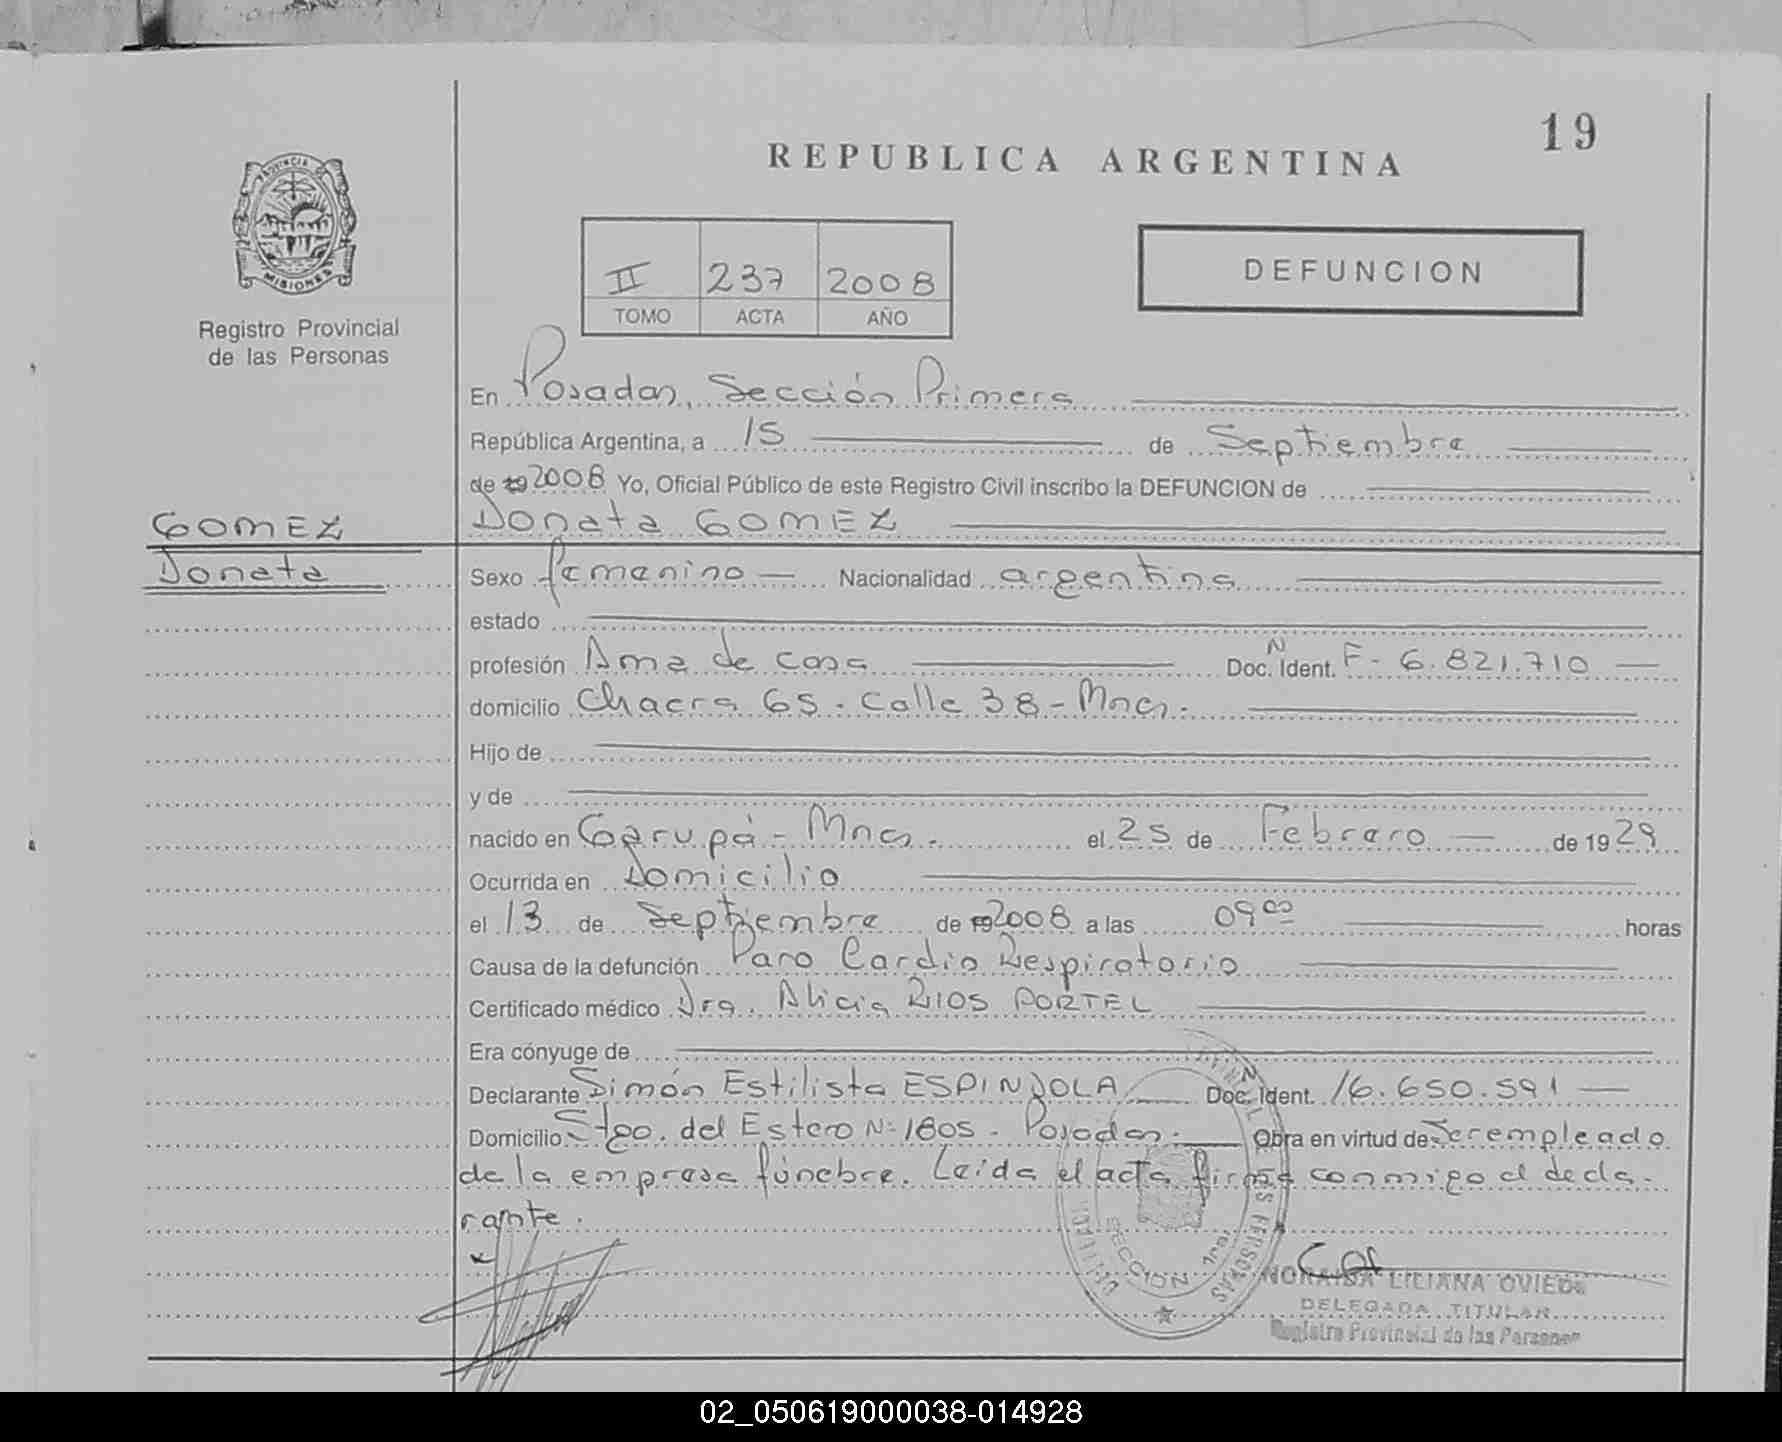 19
REPUBLICA ARGENTINA
PROVINCIA DE
MISIONES
Registro Provincial
de las Personas
II 237 2008
TOMO ACTA AÑO
DEFUNCION
En Posadas, Sección Primera
República Argentina, a 15 de Septiembre
de 19 2008 Yo, Oficial Público de este Registro Civil inscribo la DEFUNCION de
GOMEZ
Donata GOMEZ
Donata
Sexo femenino — Nacionalidad argentina
estado
profesión Ama de casa Doc. N Ident. F - 6.821.710 —
domicilio Chacra 65 - Calle 38 - Mnes.
Hijo de
y de
nacido en Garupá - Mnes. el 25 de Febrero — de 19 29
Ocurrida en Domicilio
el 13 de Septiembre de 19 2008 a las 09 00 horas
Causa de la defunción Paro Cardio Respiratorio
Certificado médico Dra. Alicia RIOS PORTEL
Era cónyuge de
Declarante Simón Estilista ESPINDOLA Doc. N Ident. 16.650.591 —
Domicilio Stgo. del Estero N: 1805 - Posadas. Obra en virtud de Ser empleado
de la empresa fúnebre. Leída el acta firma conmigo el decla-
rante.
x
SECCION 1ra.
NORAIDA LILIANA OVIEDO
DELEGADA TITULAR
Registro Provincial de las Personas
02_050619000038-014928